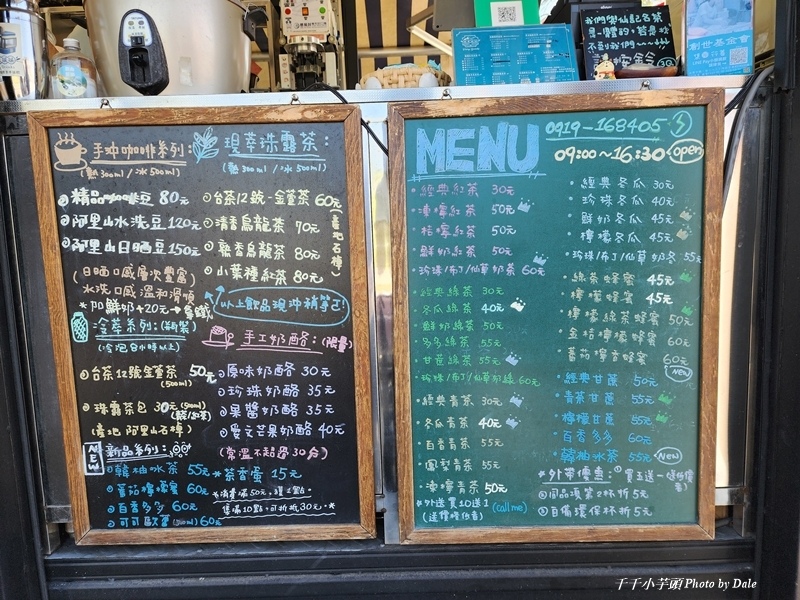 手沖咖啡系列:
(熱300ml / 冰500ml)
精品咖啡豆 80元
阿里山水洗豆 120元
阿里山日晒豆 150元
(日晒口感層次豐富)
水洗口感溫和滑順
*加鮮奶+20元→拿鐵
冷萃系列:(瓶裝)
(冷泡8小時以上)
台茶12號金萱茶 50元
(500ml)
珠露茶包 30元
(產地 阿里山石棹)
NEW 新品系列:
韓柚冰茶 55元
蕃茄檸檬蜜 60元
百香多多 60元
可可歐蕾 60元
現萃珠露茶:
(熱300ml / 冰500ml)
台茶12號·金萱茶 60元
清香烏龍茶 70元
熟香烏龍茶 80元
小葉種紅茶 80元
(產地石棹)
以上飲品現沖稍等
手工奶酪:(限量)
原味奶酪 30元
珍珠奶酪 35元
果醬奶酪 35元
愛文芒果奶酪 40元
(常溫不超過30分)
*茶香蛋 15元
*消費滿50元,獲1點。
集滿10點,可折抵30元。*
MENU
0919-168405
09:00~16:30 open
經典紅茶 30元
凍檸紅茶 50元
桔檸紅茶 50元
鮮奶紅茶 50元
珍珠/布丁/仙草奶茶 60元
經典綠茶 30元
冬瓜綠茶 40元
鮮奶綠茶 50元
多多綠茶 55元
甘蔗綠茶 55元
珍珠/布丁/仙草奶綠 60元
經典青茶 30元
冬瓜青茶 40元
百香青茶 55元
鳳梨青茶 55元
凍檸青茶 50元
*外送買10送1 (call me)
(送價格低者)
經典冬瓜 30元
珍珠冬瓜 40元
鮮奶冬瓜 45元
檸檬冬瓜 45元
珍珠/布丁/仙草奶冬 55元
綠茶蜂蜜 45元
檸檬蜂蜜 45元
檸檬綠茶蜂蜜 50元
金桔檸檬蜂蜜 60元
蕃茄檸檬蜂蜜 60元
New
經典甘蔗 50元
青茶甘蔗 55元
檸檬甘蔗 55元
百香多多 60元
韓柚冰茶 55元 New
*外帶優惠: ①買五送一
②同品項第2杯折5元
③自備環保杯折5元
創世基金會
千千小芋頭 Photo by Dale